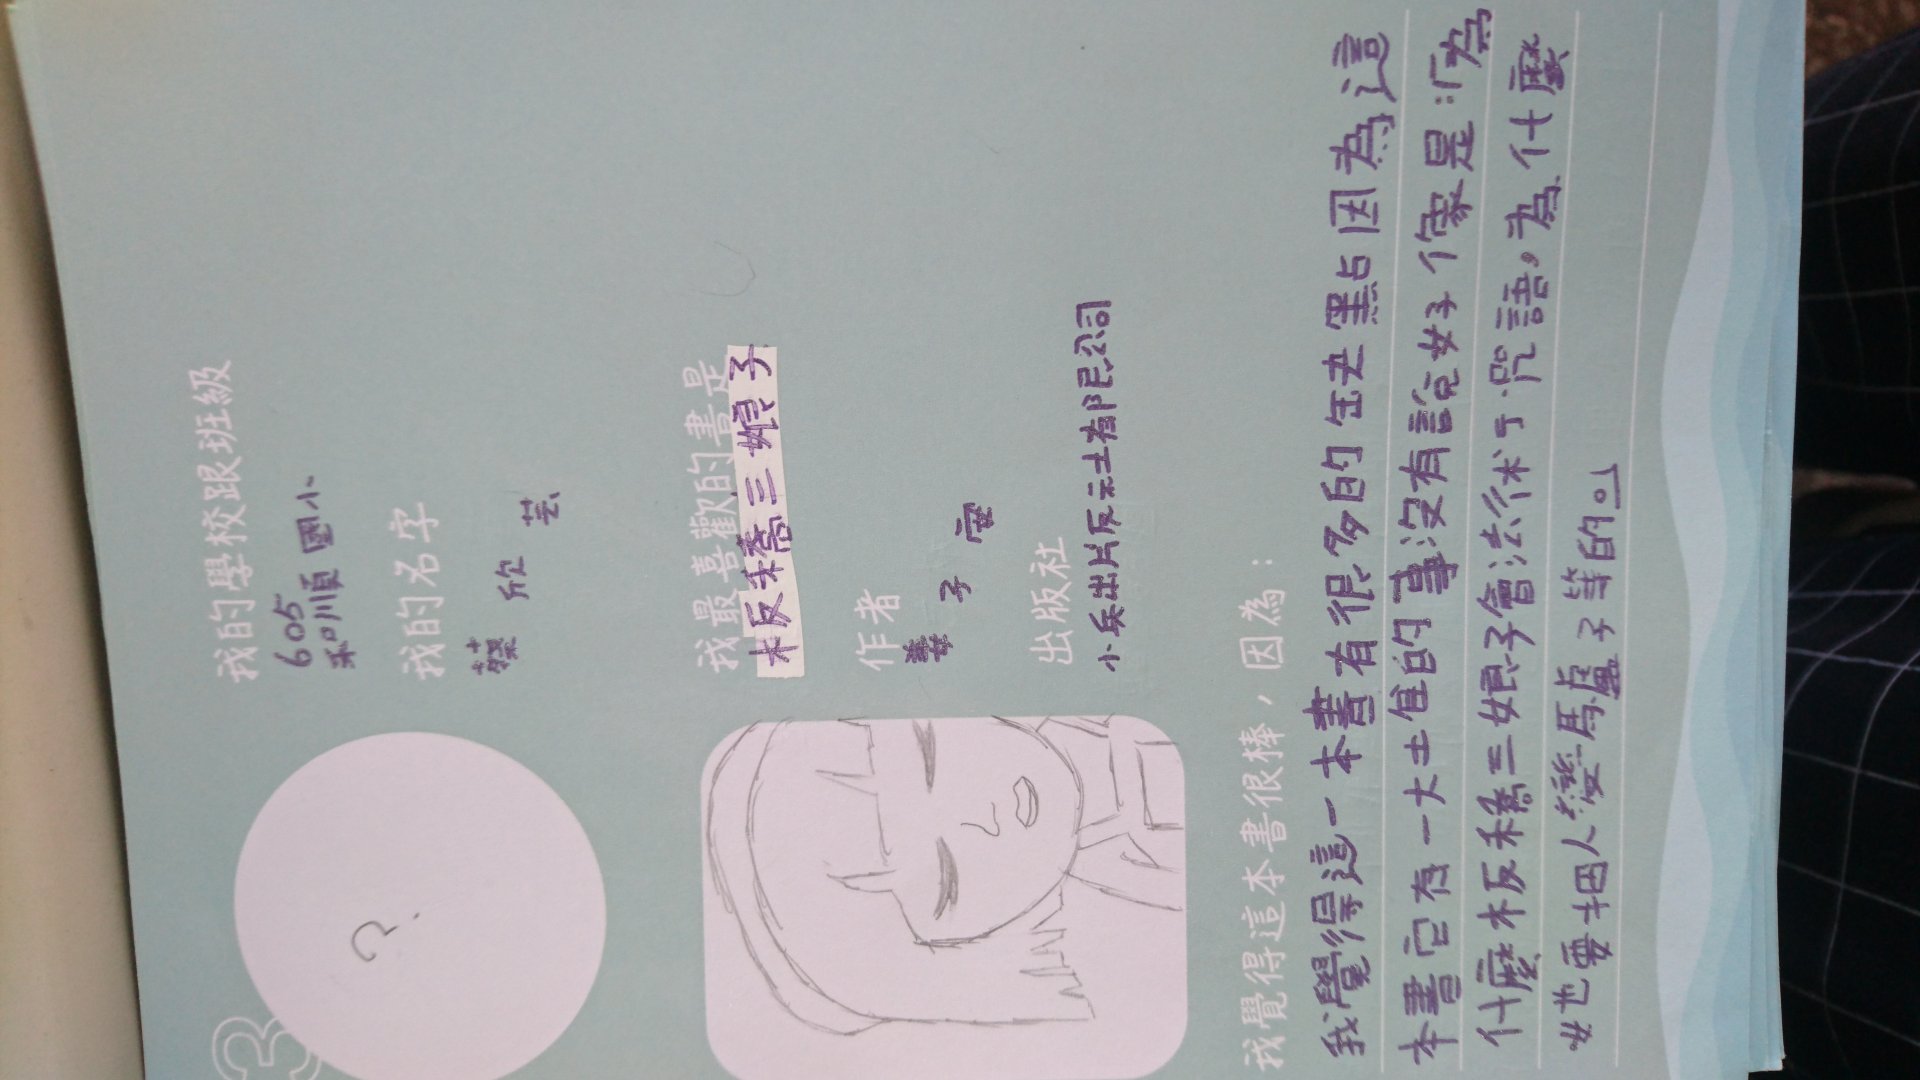 3
我的學校跟班級
605
和順國小
我的名字
蔡欣芸
我最喜歡的書是
板橋三娘子
作者
姜子安
出版社
小兵出版有限公司
我覺得這本書很棒，因為：
我覺得這一本書有很多的缺點因為這
本書它有一大堆的事沒有說好像是:「為
什麼板橋三娘子會法術咒語，為什麼
她要把人變馬盧子等的」